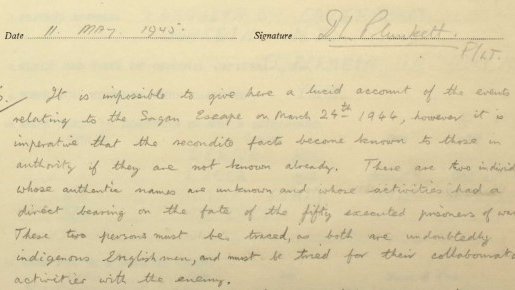 Date 11. MAY 1945. Signature DL Plunkett.
F/Lt.
5. It is impossible to give here a lucid account of the events
relating to the Sagan Escape on March 24th 1944, however it is
imperative that the recondite facts become known to those in
authority if they are not known already. There are two individ
whose authentic names are unknown and whose activities had a
direct bearing on the fate of the fifty executed prisoners of wa
These two persons must be traced, as both are undoubtedly
indigenous Englishmen, and must be tried for their collaborat
activities with the enemy.